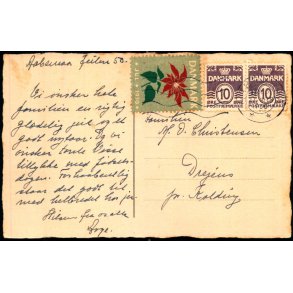 Aabenraa Julen 50.
Vi ønsker hele
familien en rigtig
glædelig jul og et
godt nytaar. Og vi
ønsker
tillykke med fødsels-
dagen. Forhaabentlig
staar det godt til
med helbredet hos jer.
Hilsen fra os alle
JUL 1950
DANMARK
10
DANMARK
POSTFRIMÆRKE
10
DANMARK
POSTFRIMÆRKE
Familien
A. D. Christensen
Drejens
pr. Kolding